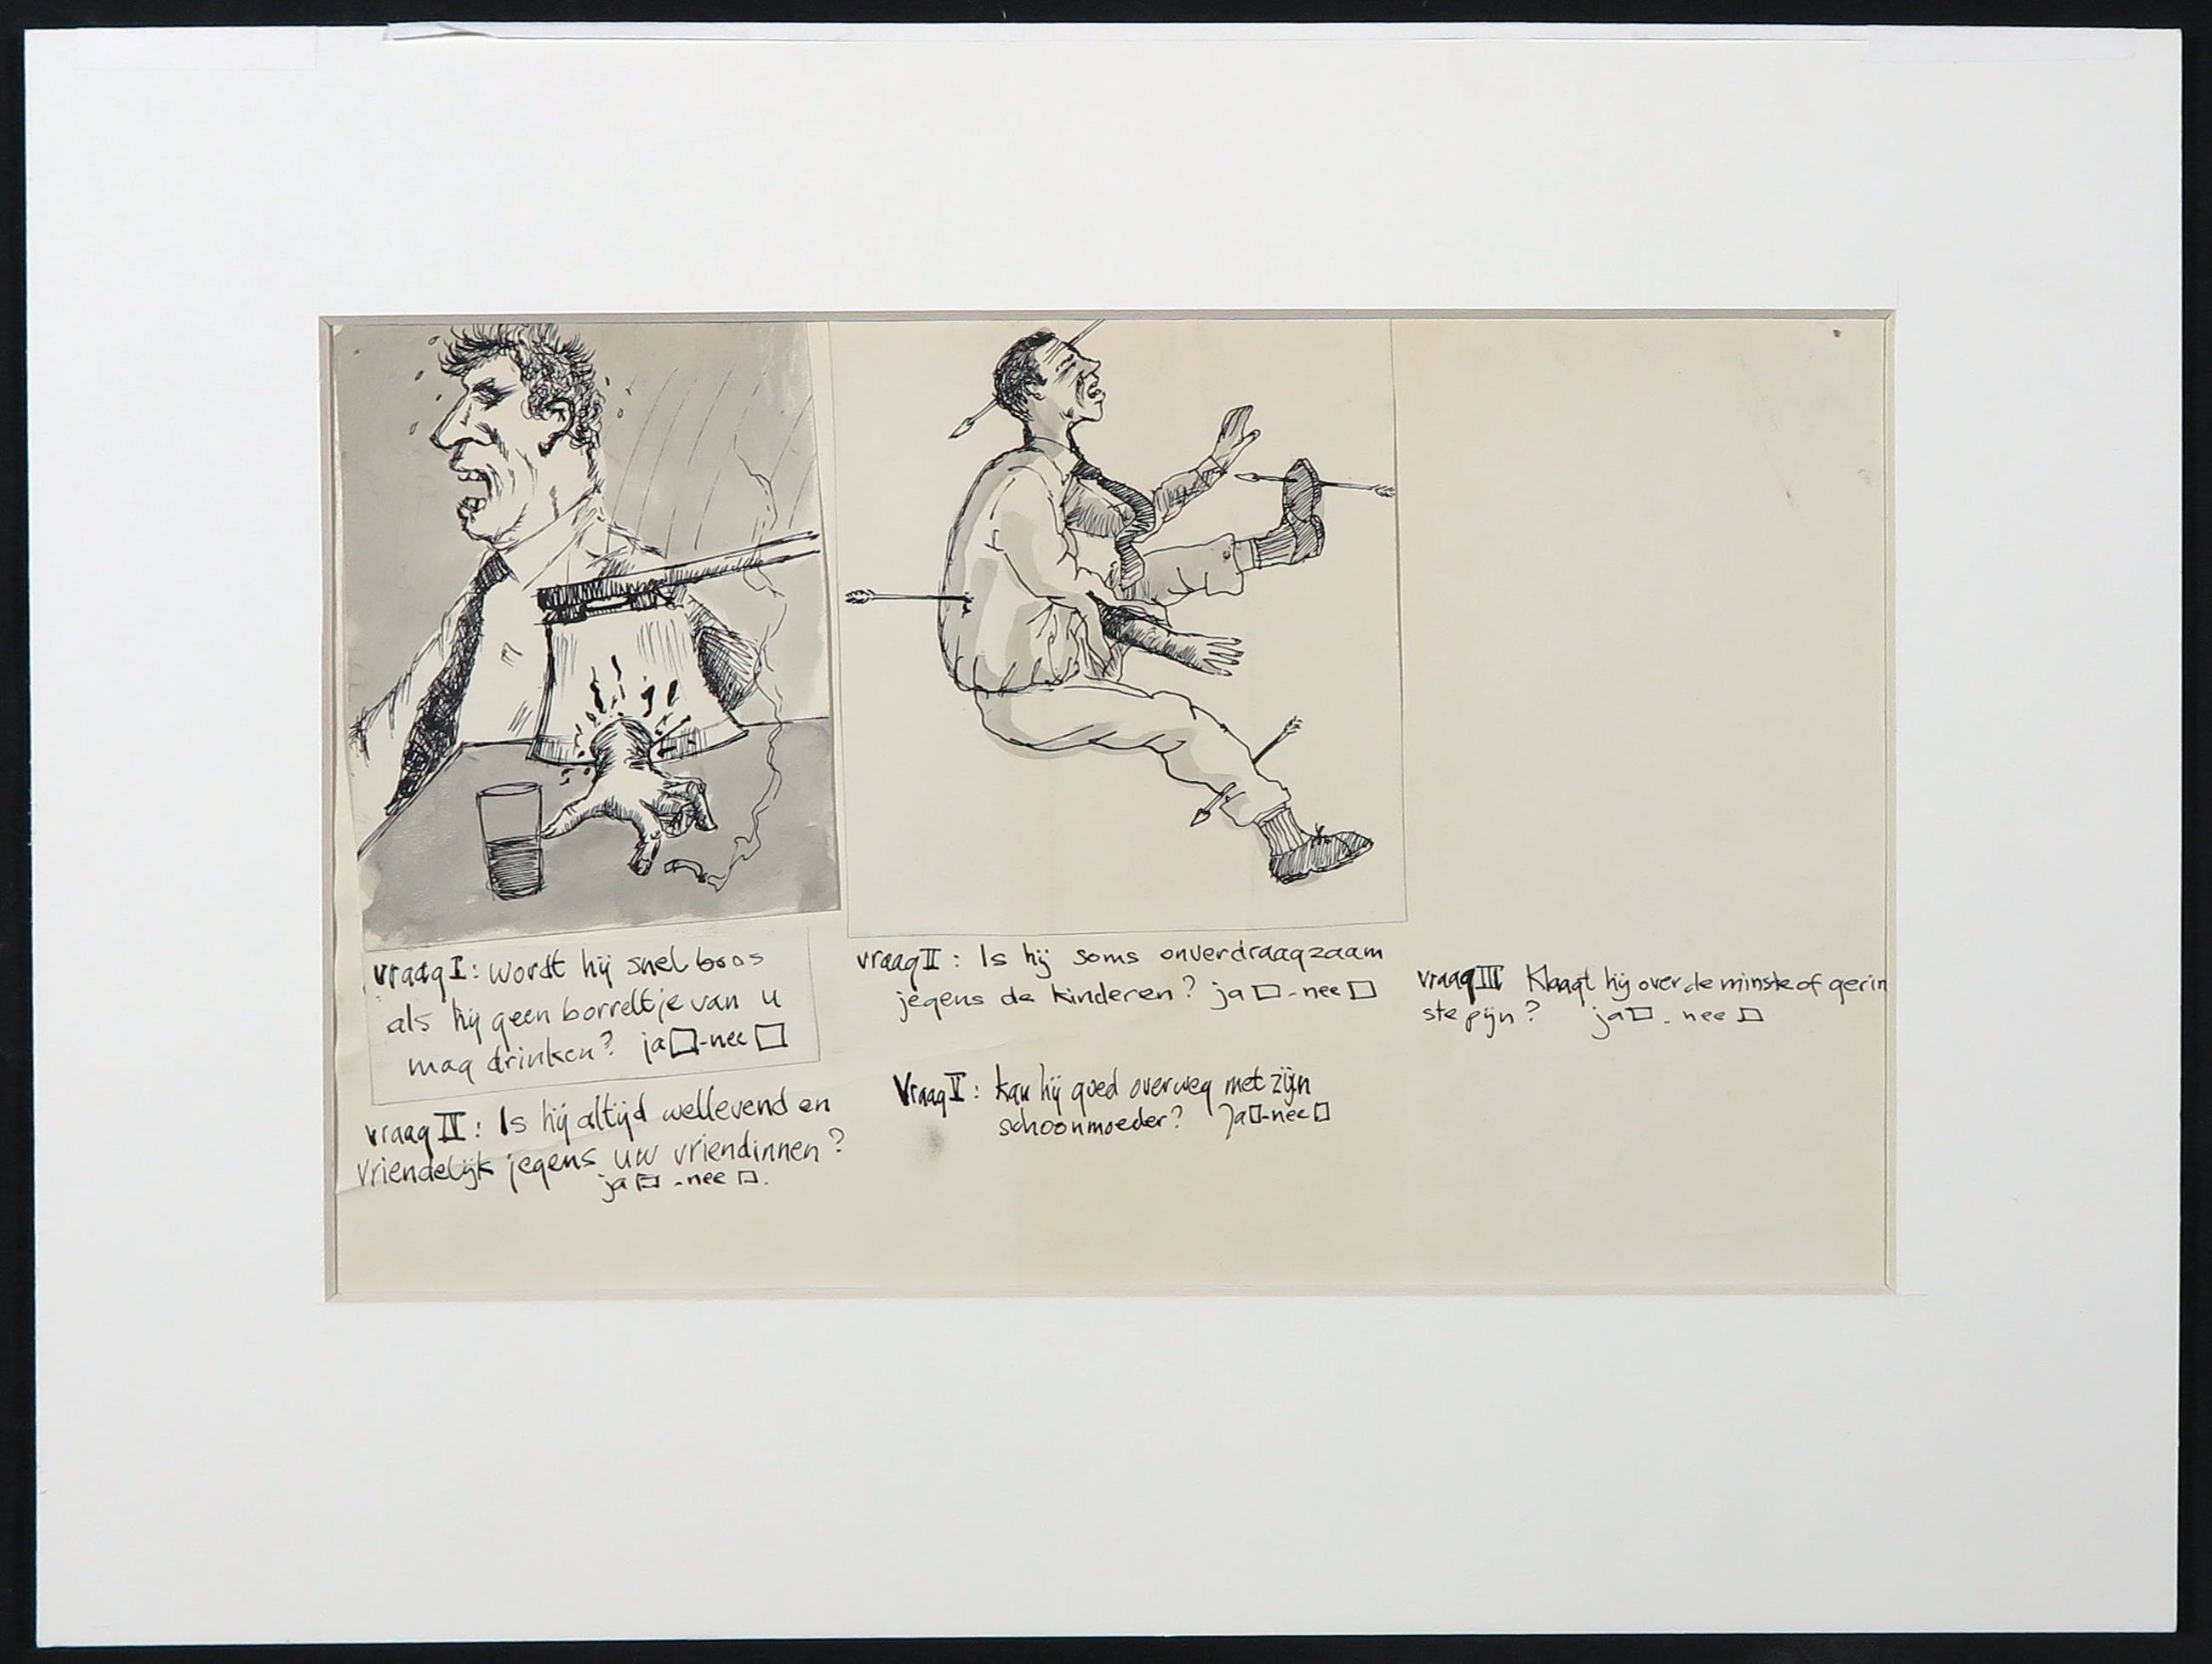 vraag I: wordt hij snel boos
als hij geen borreltje van u
mag drinken? ja☐-nee ☐
vraag II: Is hij soms onverdraagzaam
jegens de kinderen? ja ☐-nee ☐
vraag III Klaagt hij over de minste of gerin
ste pijn? ja☐-nee ☐
vraag IV: Is hij altijd wellevend en
vriendelijk jegens uw vriendinnen?
ja ☐-nee ☐.
Vraag V: kan hij goed overweg met zijn
schoonmoeder? Ja☐-nee☐